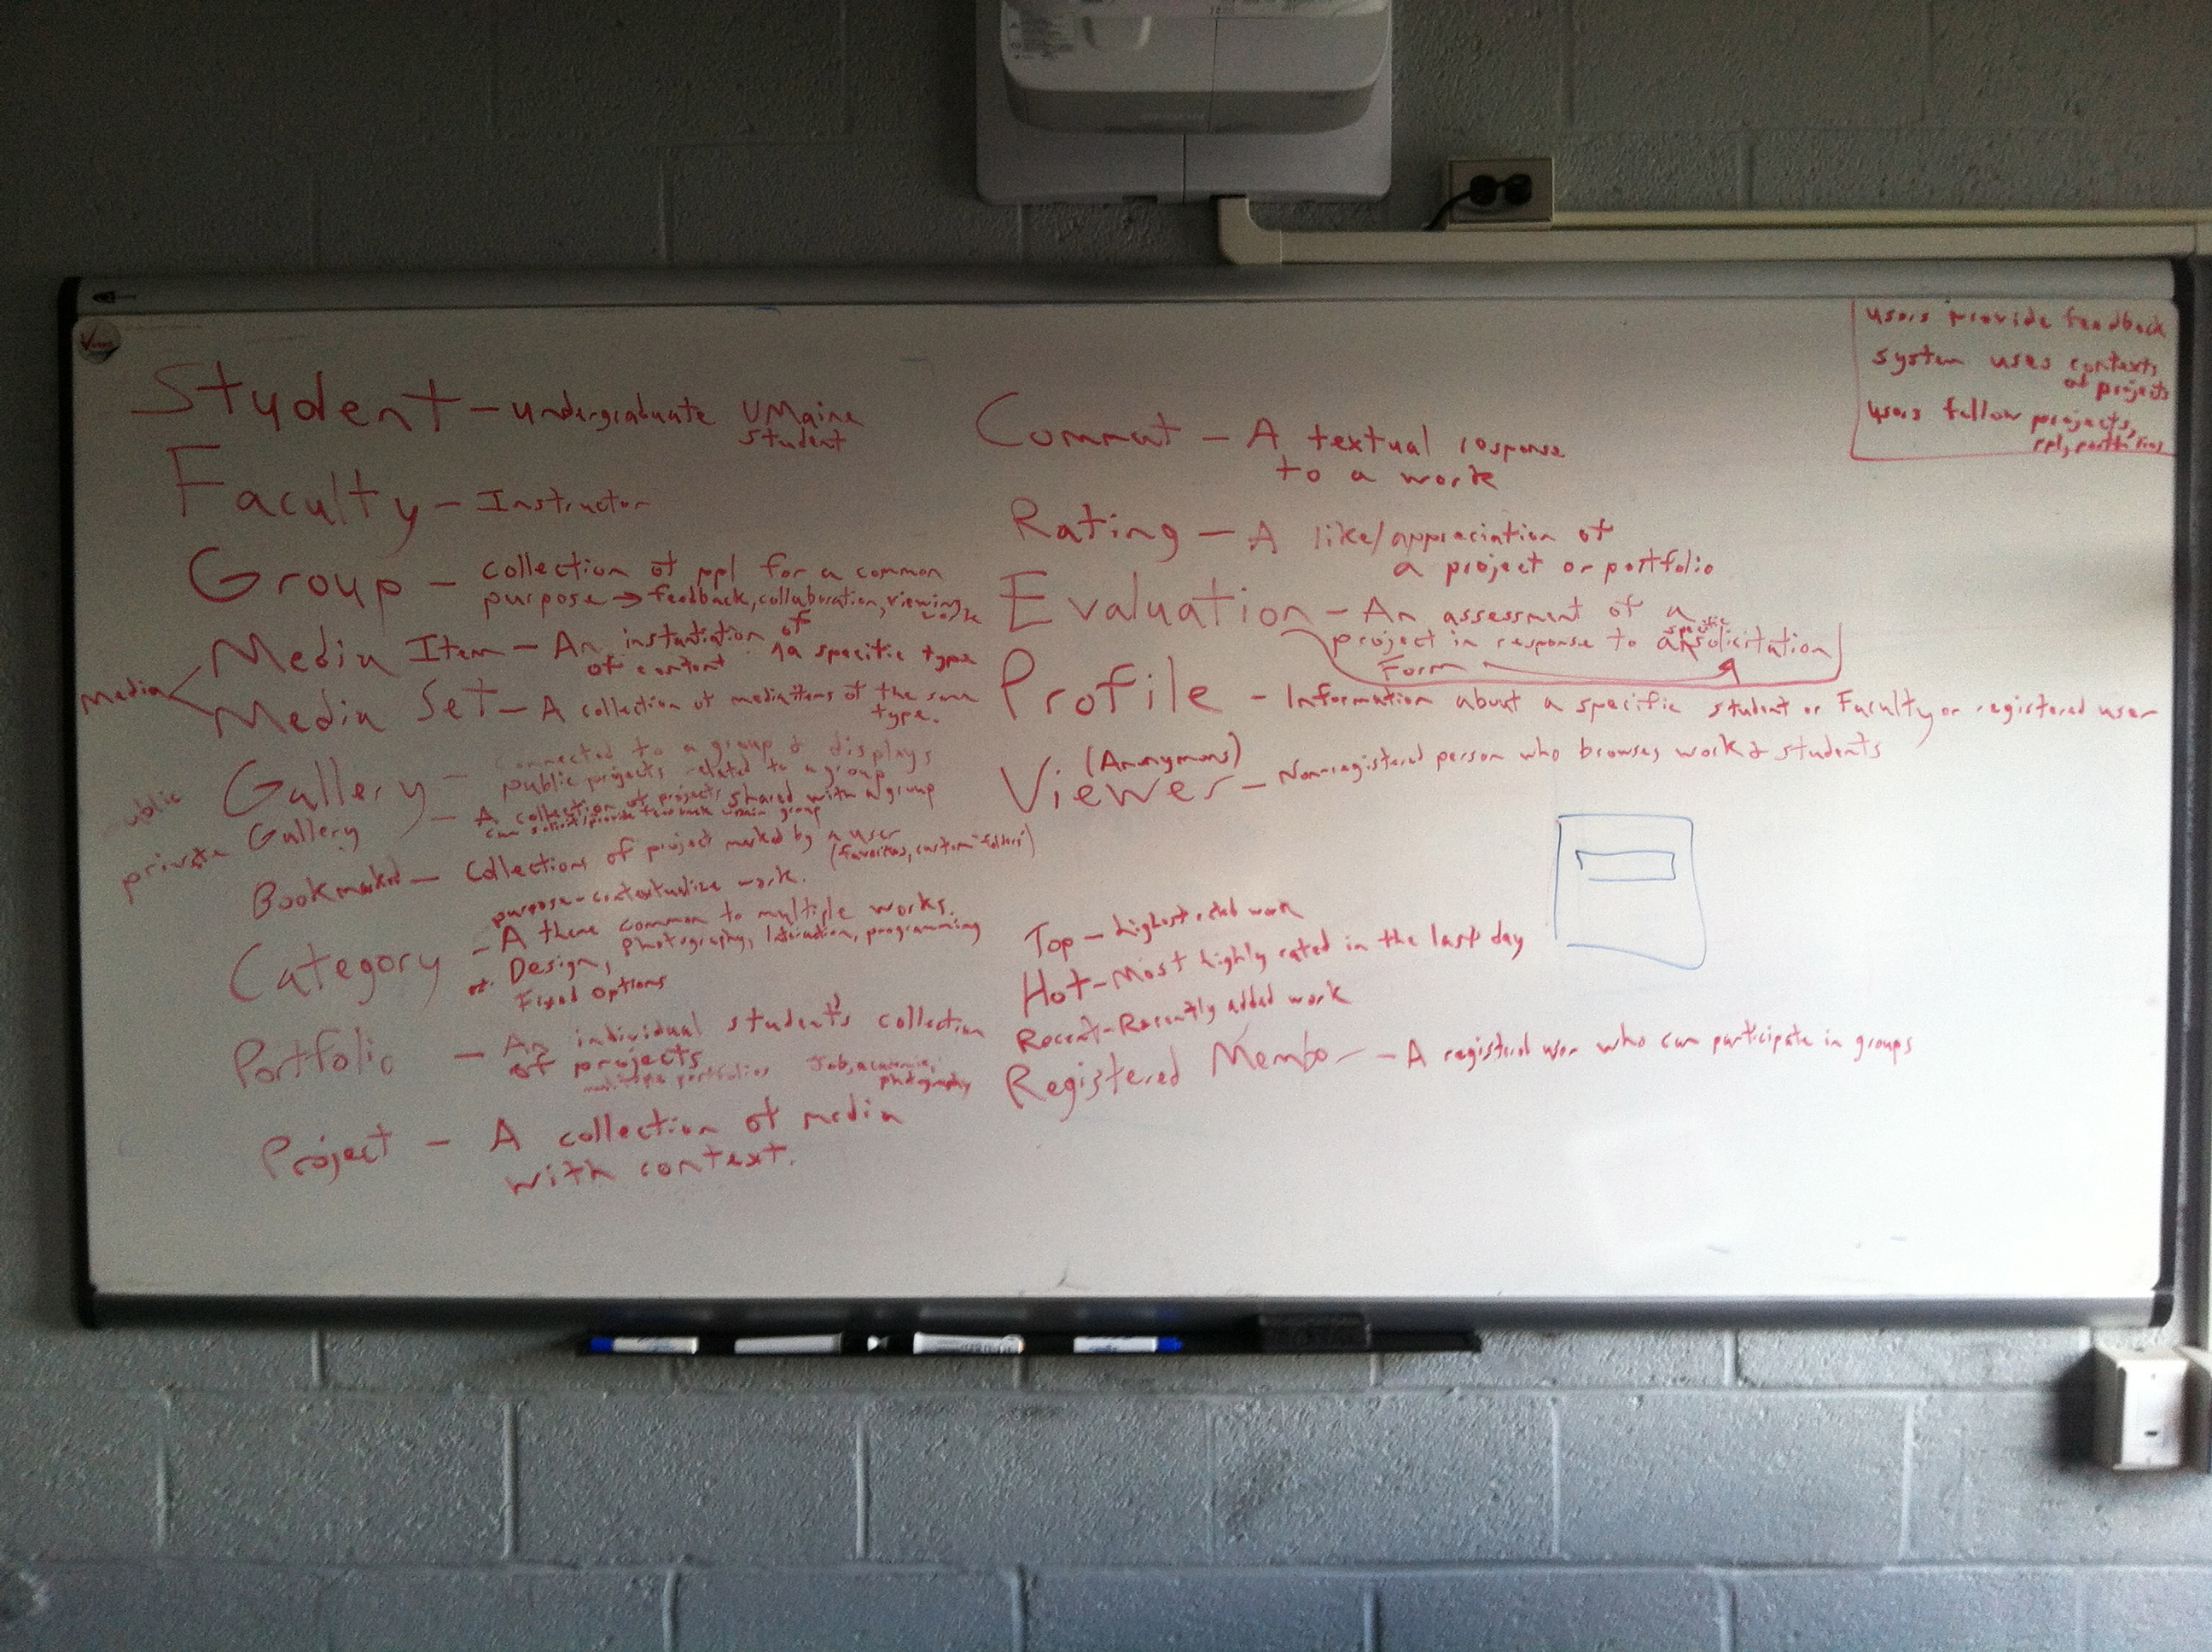 Student - undergraduate UMaine
student
Faculty - Instructor
Group - collection of ppl for a common
purpose → feedback, collaboration, viewing
work
Media
Media Item - An instantiation of
of content a specific type
Media Set - A collection of media items of the same
type.
public Gallery - connected to a group & displays
public projects related to a group
private Gallery - A collection of projects shared with a group
can solicit/provide feedback within group
Bookmarked - Collections of project marked by a user
(favorites, custom "folders")
purpose - contextualize work.
Category - A theme common to multiple works.
ex. Design, photography, Interaction, programming
Fixed Options
Portfolio - An individual student's collection
of projects
multiple portfolios Job, academic,
photography
Project - A collection of media
with context.
Commnt - A textual response
to a work
Rating - A like/appreciation of
a project or portfolio
Evaluation - An assessment of a
specific
project in response to a solicitation
Form
Profile - Information about a specific student or Faculty or registered user
(Anonymous)
Viewer - Non-registered person who browses work & students
Top - highest rated work
Hot - Most highly rated in the last day
Recent - Recently added work
Registered Member - A registered user who can participate in groups
users provide feedback
system uses contexts
of projects
users follow projects,
ppl, portfolios